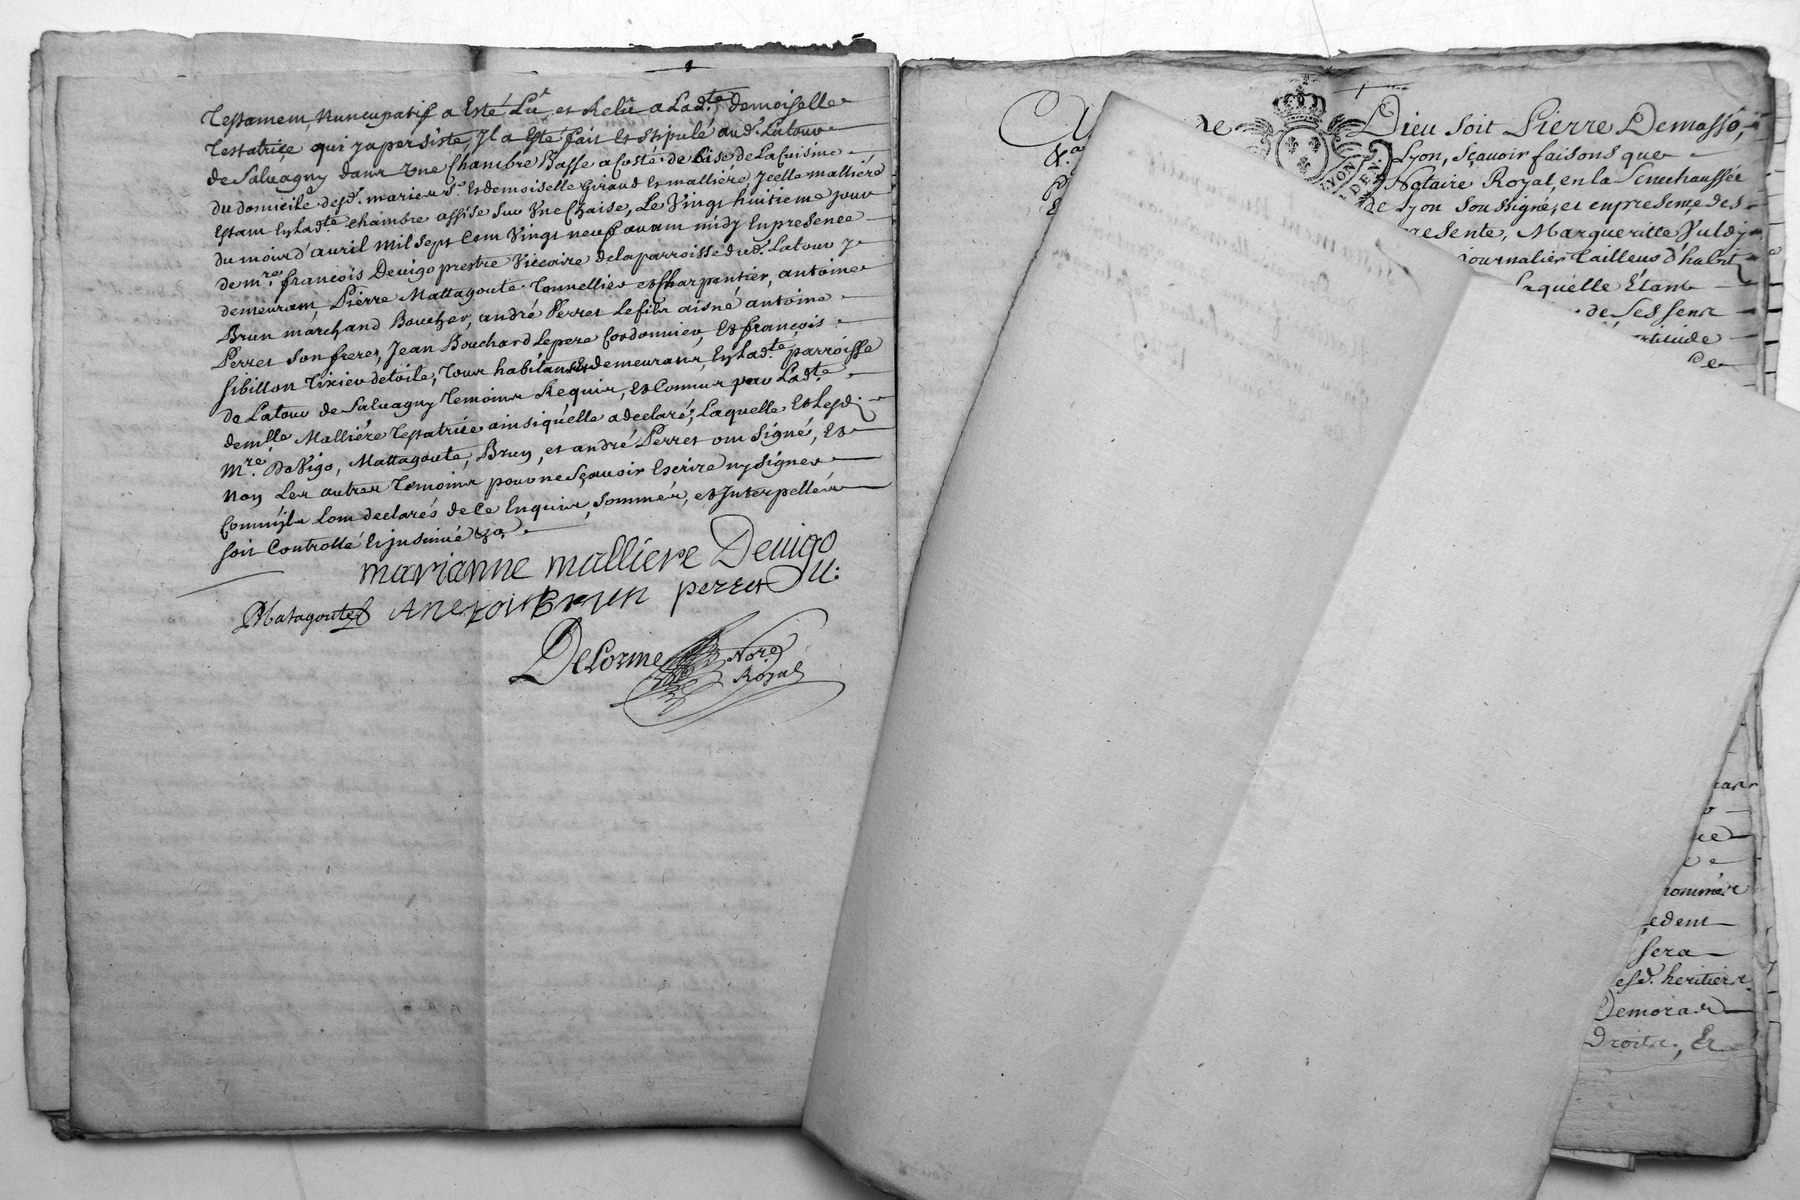 Testament Nuncupatif a Esté Lû, et Relû a Lad.te demoiselle
Testatrice qui y a persisté, Il a Esté fait Et stipulé aud. Latour
de Salvagny dans Une Chambre Basse a Costé de Bise de La Cuisine
du domicile desd. mariez S.r Et demoiselle Giraud Et malliere Icelle malliere
Estant En Lad.te chambre assise sur Une Chaise, Le Vingt huitieme jour
du mois d'avril mil sept Cent Vingt neuf avant midy En presence
de m.re françois Devigo prestre Viccaire de la parroisse dud. Latour y
demeurant, Pierre Mattagoute Tonnellier et Charpentier, antoine
Brun marchand Boucher, andré Perret Le fils aisné antoine
Perret son frere, Jean Bouchard Le pere Cordonnier, Et françois
sibillon Tixier de toile, Tous habitans Et demeurans En Lad.te parroisse
de Latour de Salvagny Temoins Requis, Et Connus par Lad.te
dem.lle Malliére Testatrice ainsi qu'elle a declaré, Laquelle Et Lesd.
M.re DeVigo, Mattagoute, Brun, et andré Perret ont signé, Et
Non Les autres Temoins pour ne sçavoir Escrire ny signer
Comm'ils L'ont declarés de Ce Enquis, sommés, et Interpellés
soit Controllé Et jnsinué
marianne malliere Devigo
Matagoute Brun perret Vi:
DeLorme No.re
Royal
Dieu Soit Pierre Demasso,
Lyon, Sçavoir faisons que
Notaire Royal, en la Senechaussée
de Lyon Soussigné, et en presence des
presente, Marguerite
journalier Tailleur d'habit
Laquelle Étant
de Ses Sens
Ce
LYON
DEN.
sera
esd. heritiers
Droits, Et